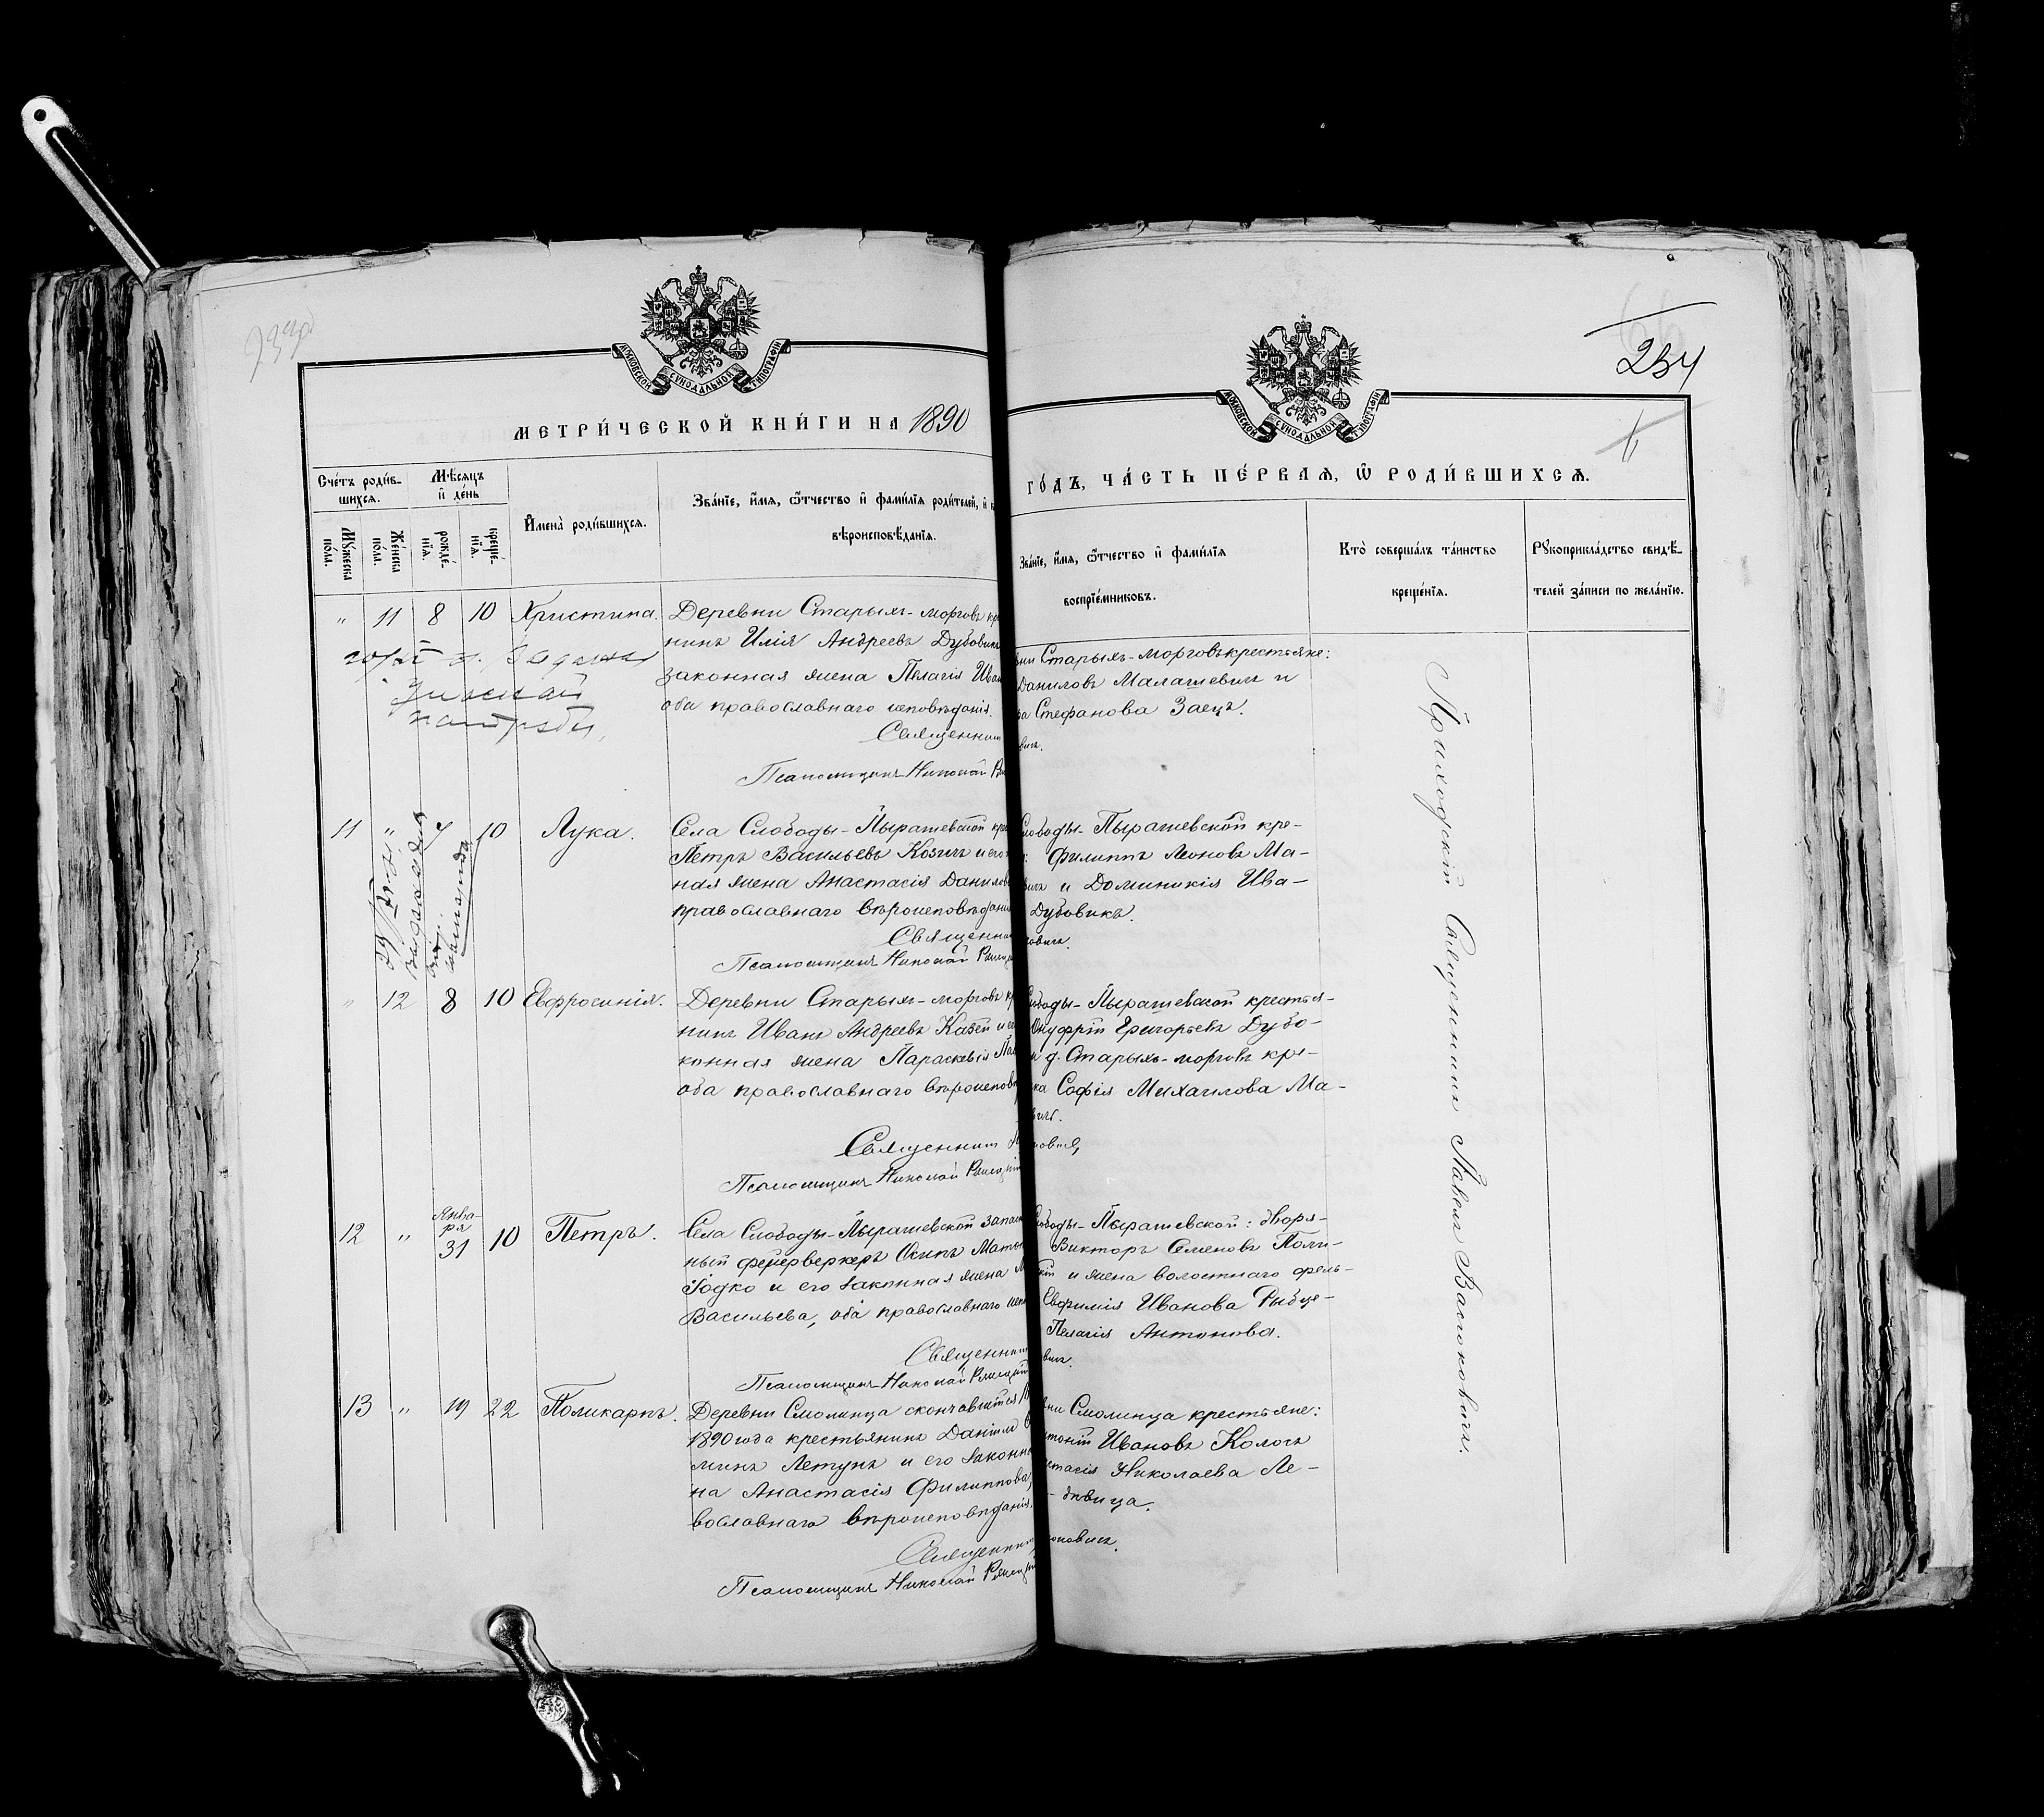 МОСКОВСКОЙ СѴНОДАЛЬНОЙ ТИПОГРАФІИ
МЕТРИ́ЧЕСКОЙ КНИ́ГИ НА 1890
Сче́тъ роди́в-
шихся.
Мѣ́сяцъ
и҆ де́нь
Мꙋ́жеска
по́ла.
Же́нска
по́ла.
рожде́-
нїѧ.
креще́-
нїѧ.
И҆мена̀ роди́вшихсѧ.
Зва́нїе, и҆́мѧ, ѻ҆́тчество и҆ фами́лїѧ роди́телей, и҆
вѣроисповѣ́данїѧ.
„ 11 8 10 Христина. Деревни Старыхъ-морговъ кре
нинъ Илія Андреевъ Дубовикъ
законная жена Пелагія Иван
оба православнаго исповѣданія.
Священник
Псаломщикъ Николай
11 „ 7 10 Лука. Села Слободы-Пырашевской кре
Петръ Васильевъ Козичъ и его
ная жена Анастасія Данилов
православнаго вѣроисповѣданія
Священник
Псаломщикъ Николай
„ 12 8 10 Евфросинія. Деревни Старыхъ-морговъ кр
нинъ Иванъ Андреевъ Казей и е
конная жена Параскевія
оба православнаго вѣроисповѣ
Священник
Псаломщикъ Николай
12 „ Янва-
ря
31 10 Петръ. Села Слободы-Пырашевской запас
ный фейерверкеръ Осипъ
Годко и его законная жена
Васильева, оба православнаго
Священник
Псаломщикъ Николай
13 „ 19 22 Поликарпъ. Деревни Смолинца скончавшійся
1890 года крестьянинъ Даніилъ
минъ Летунъ и его законна
на Анастасія Филиппова,
вославнаго вѣроисповѣданія.
Священник
Псаломщикъ Николай
234
6
МОСКОВСКОЙ СѴНОДАЛЬНОЙ ТИПОГРАФІИ
ГО́ДЪ, ЧА́СТЬ ПЕ́РВАѦ, Ѽ РОДИ́ВШИХСѦ.
Зва́нїе, и҆́мѧ, ѻ҆́тчество и҆ фами́лїѧ
воспрїе́мниковъ.
Кто̀ соверша́лъ та́инство
креще́нїѧ.
Рꙋкоприкла́дство свидѣ́-
телей за́писи по жела́нїю.
вни Старыхъ-морговъ крестьяне:
Даниловъ Малашевичъ и
ра Стефанова Заецъ.
вичъ.
лободы-Пырашевской кре-
: Филиппъ Леоновъ Ма-
вичъ и Доминикія Ива-
Дубовикъ.
ковичъ.
лободы-Пырашевской крестья-
Онуфрій Григорьевъ Дубо-
и д. Старыхъ-морговъ кре-
ка Софія Михаилова Ма-
вичъ.
новичъ,
лободы-Пырашевской: дворя-
Викторъ Семеновъ Поли-
кій и жена волостнаго фель-
Евфимія Иванова Рыбце-
Пелагія Антонова.
вичъ.
вни Смолинца крестьяне:
тоній Ивановъ Колосъ
стасія Николаева Ле-
- дѣвица.
юковичъ.
Приходскій Священникъ Павелъ Васюковичъ.